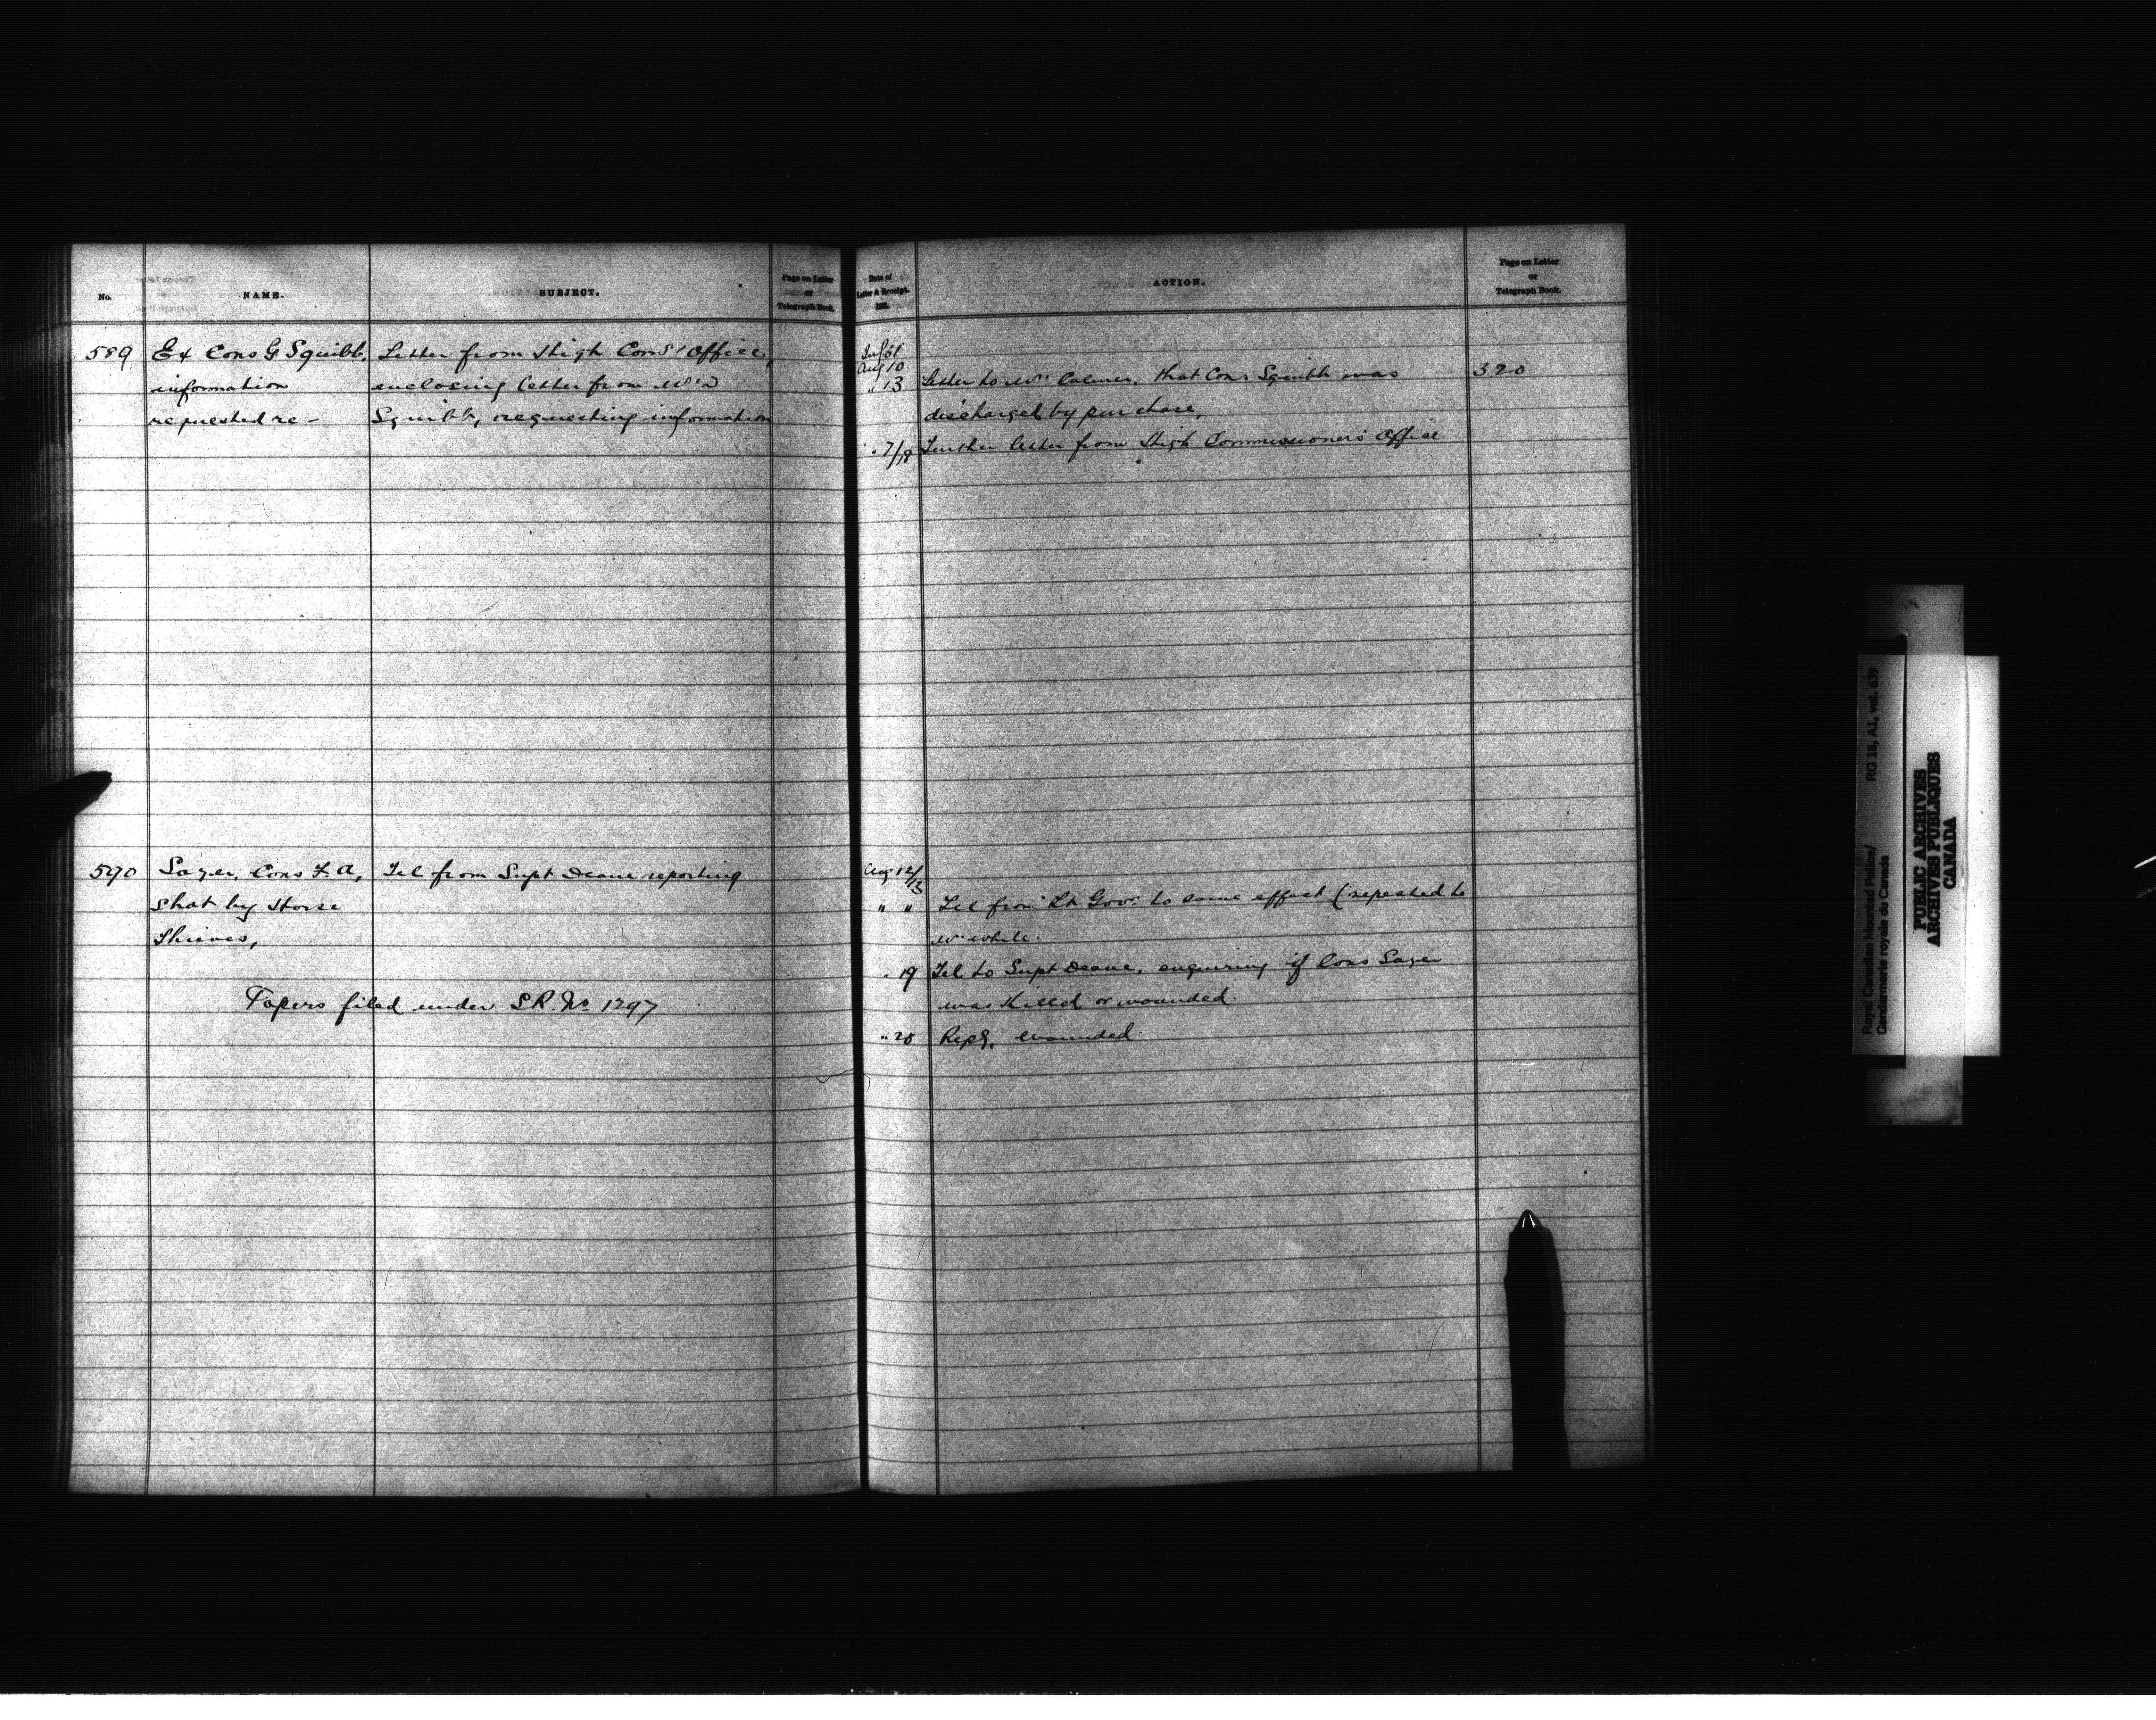 No.
NAME.
SUBJECT.
Page on Letter
or
Telegraph Book.
589
Ex Cons G Squibb,
information
requested re -
Letter from High Com's' Office,
enclosing letter from Mrs
Squibb, requesting information
590
Sayer, Cons F. A,
shot by Horse
Thieves,
Tel from Supt Deane reporting
Papers filed under S.R. No 1297
Date of
Letter & Receipt.
188
ACTION.
Page on Letter
or
Telegraph Book.
Jul 31
Aug 10
" 13
Letter to Mr Colmer, that Cons Squibb was
320
discharged by purchase,
" 7/18
Further letter from High Commissioners Office
Aug 12/13
" "
Tel from Lt Govr to same effect (repeated to
Mr White.
" 19
Tel to Supt Deane, enquiring if Cons Sayer
was killed or wounded.
" 20
Reply, wounded
Royal Canadian Mounted Police/
Gendarmerie royale du Canada
RG 18, A1, vol. 639
PUBLIC ARCHIVES
ARCHIVES PUBLIQUES
CANADA